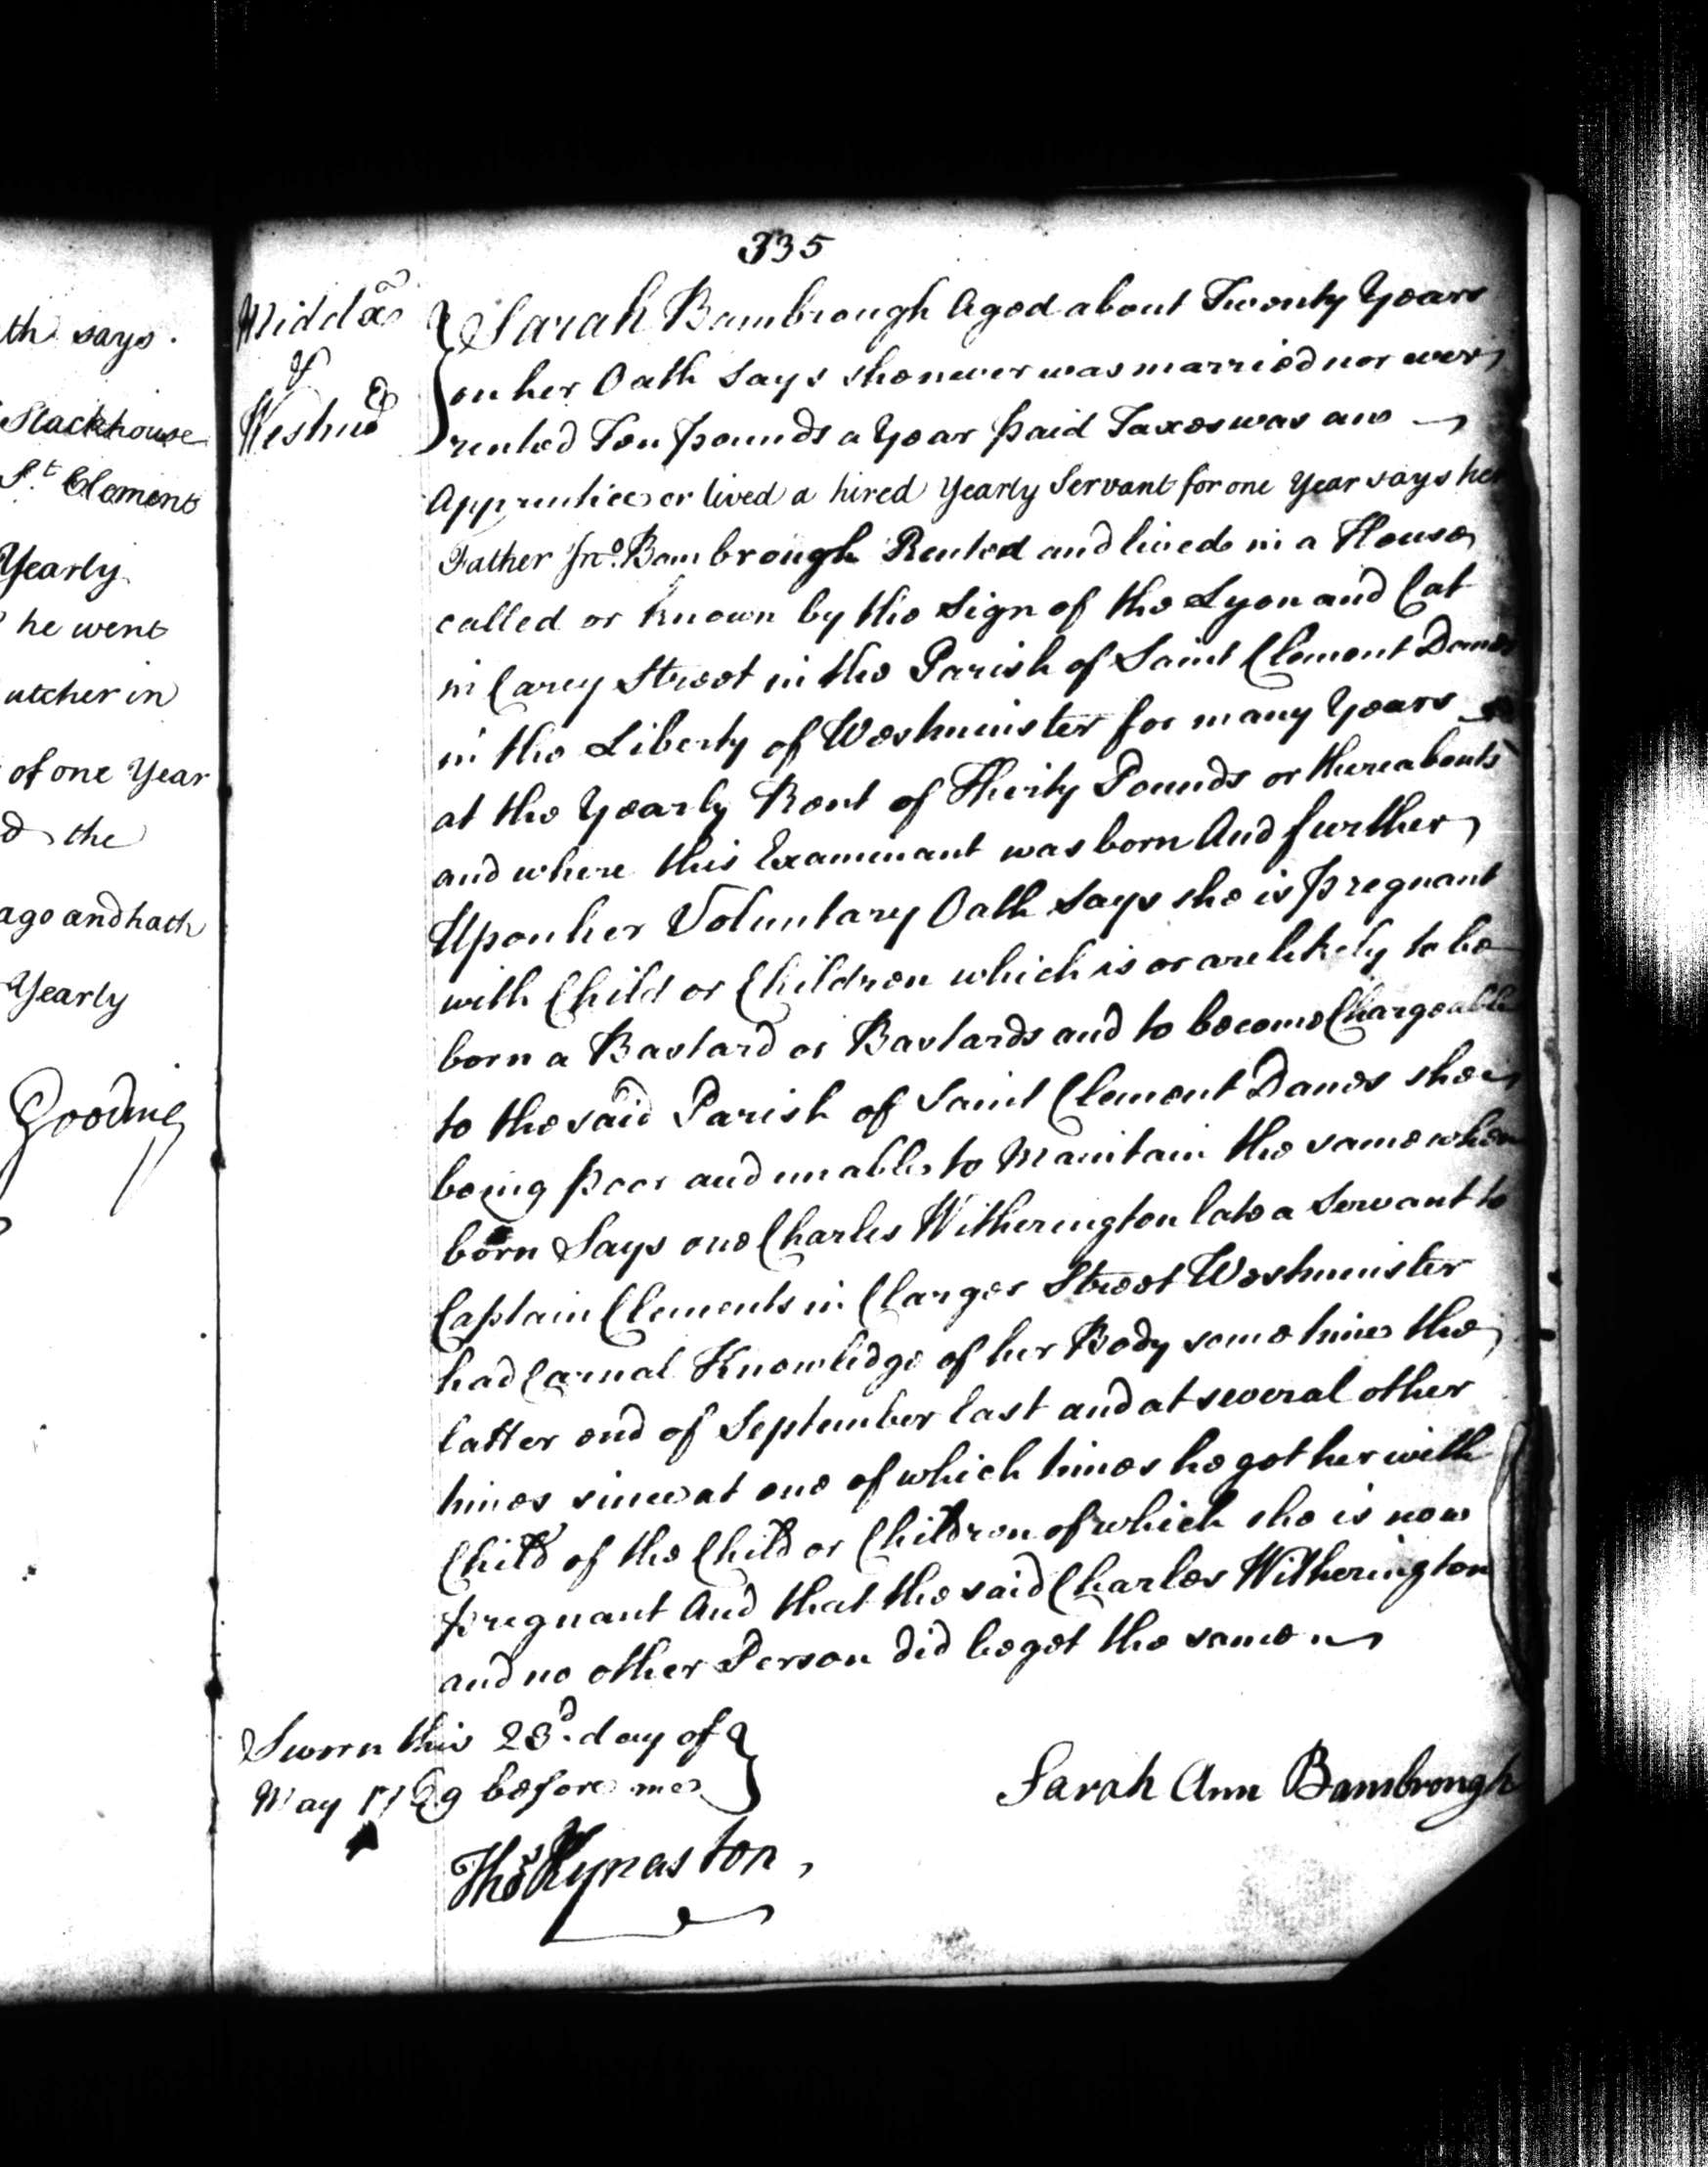 th says.
Stackhouse
St. Clement
Yearly
he went
utcher in
of one Year
d the
ago and hath
Yearly
Gooding
335
Middx
&
Westmr
Sarah Bambrough Aged about Twenty Years
on her Oath Says she never was married nor ever
rented Ten pounds a Year paid Taxes was an
Apprentice or lived a hired Yearly Servant for one Year says her
Father Jno. Bambrough Rented and lived in a House
called or known by the Sign of the Lyon and Cat
in Carey Street in the Parish of Saint Clement Danes
in the Liberty of Westminster for many Years
at the Yearly Rent of Thirty Pounds or thereabouts
and where this Examinant was born And further
Upon her Voluntary Oath Says she is pregnant
with Child or Children which is or are likely to be
born a Bastard or Bastards and to become Chargeable
to the said Parish of Saint Clement Danes she
being poor and unable to Maintain the same when
born Says one Charles Witherington late a Servant to
Captain Clements in Clarges Street Westminster
had Carnal Knowledge of her Body some time the
latter end of September last and at several other
times since at one of which times he got her with
Child of the Child or Children of which she is now
pregnant And that the said Charles Witherington
and no other Person did beget the same
Sworn this 23d. day of
May 1769 before me
Sarah Ann Bambrough
Thos Kynaston